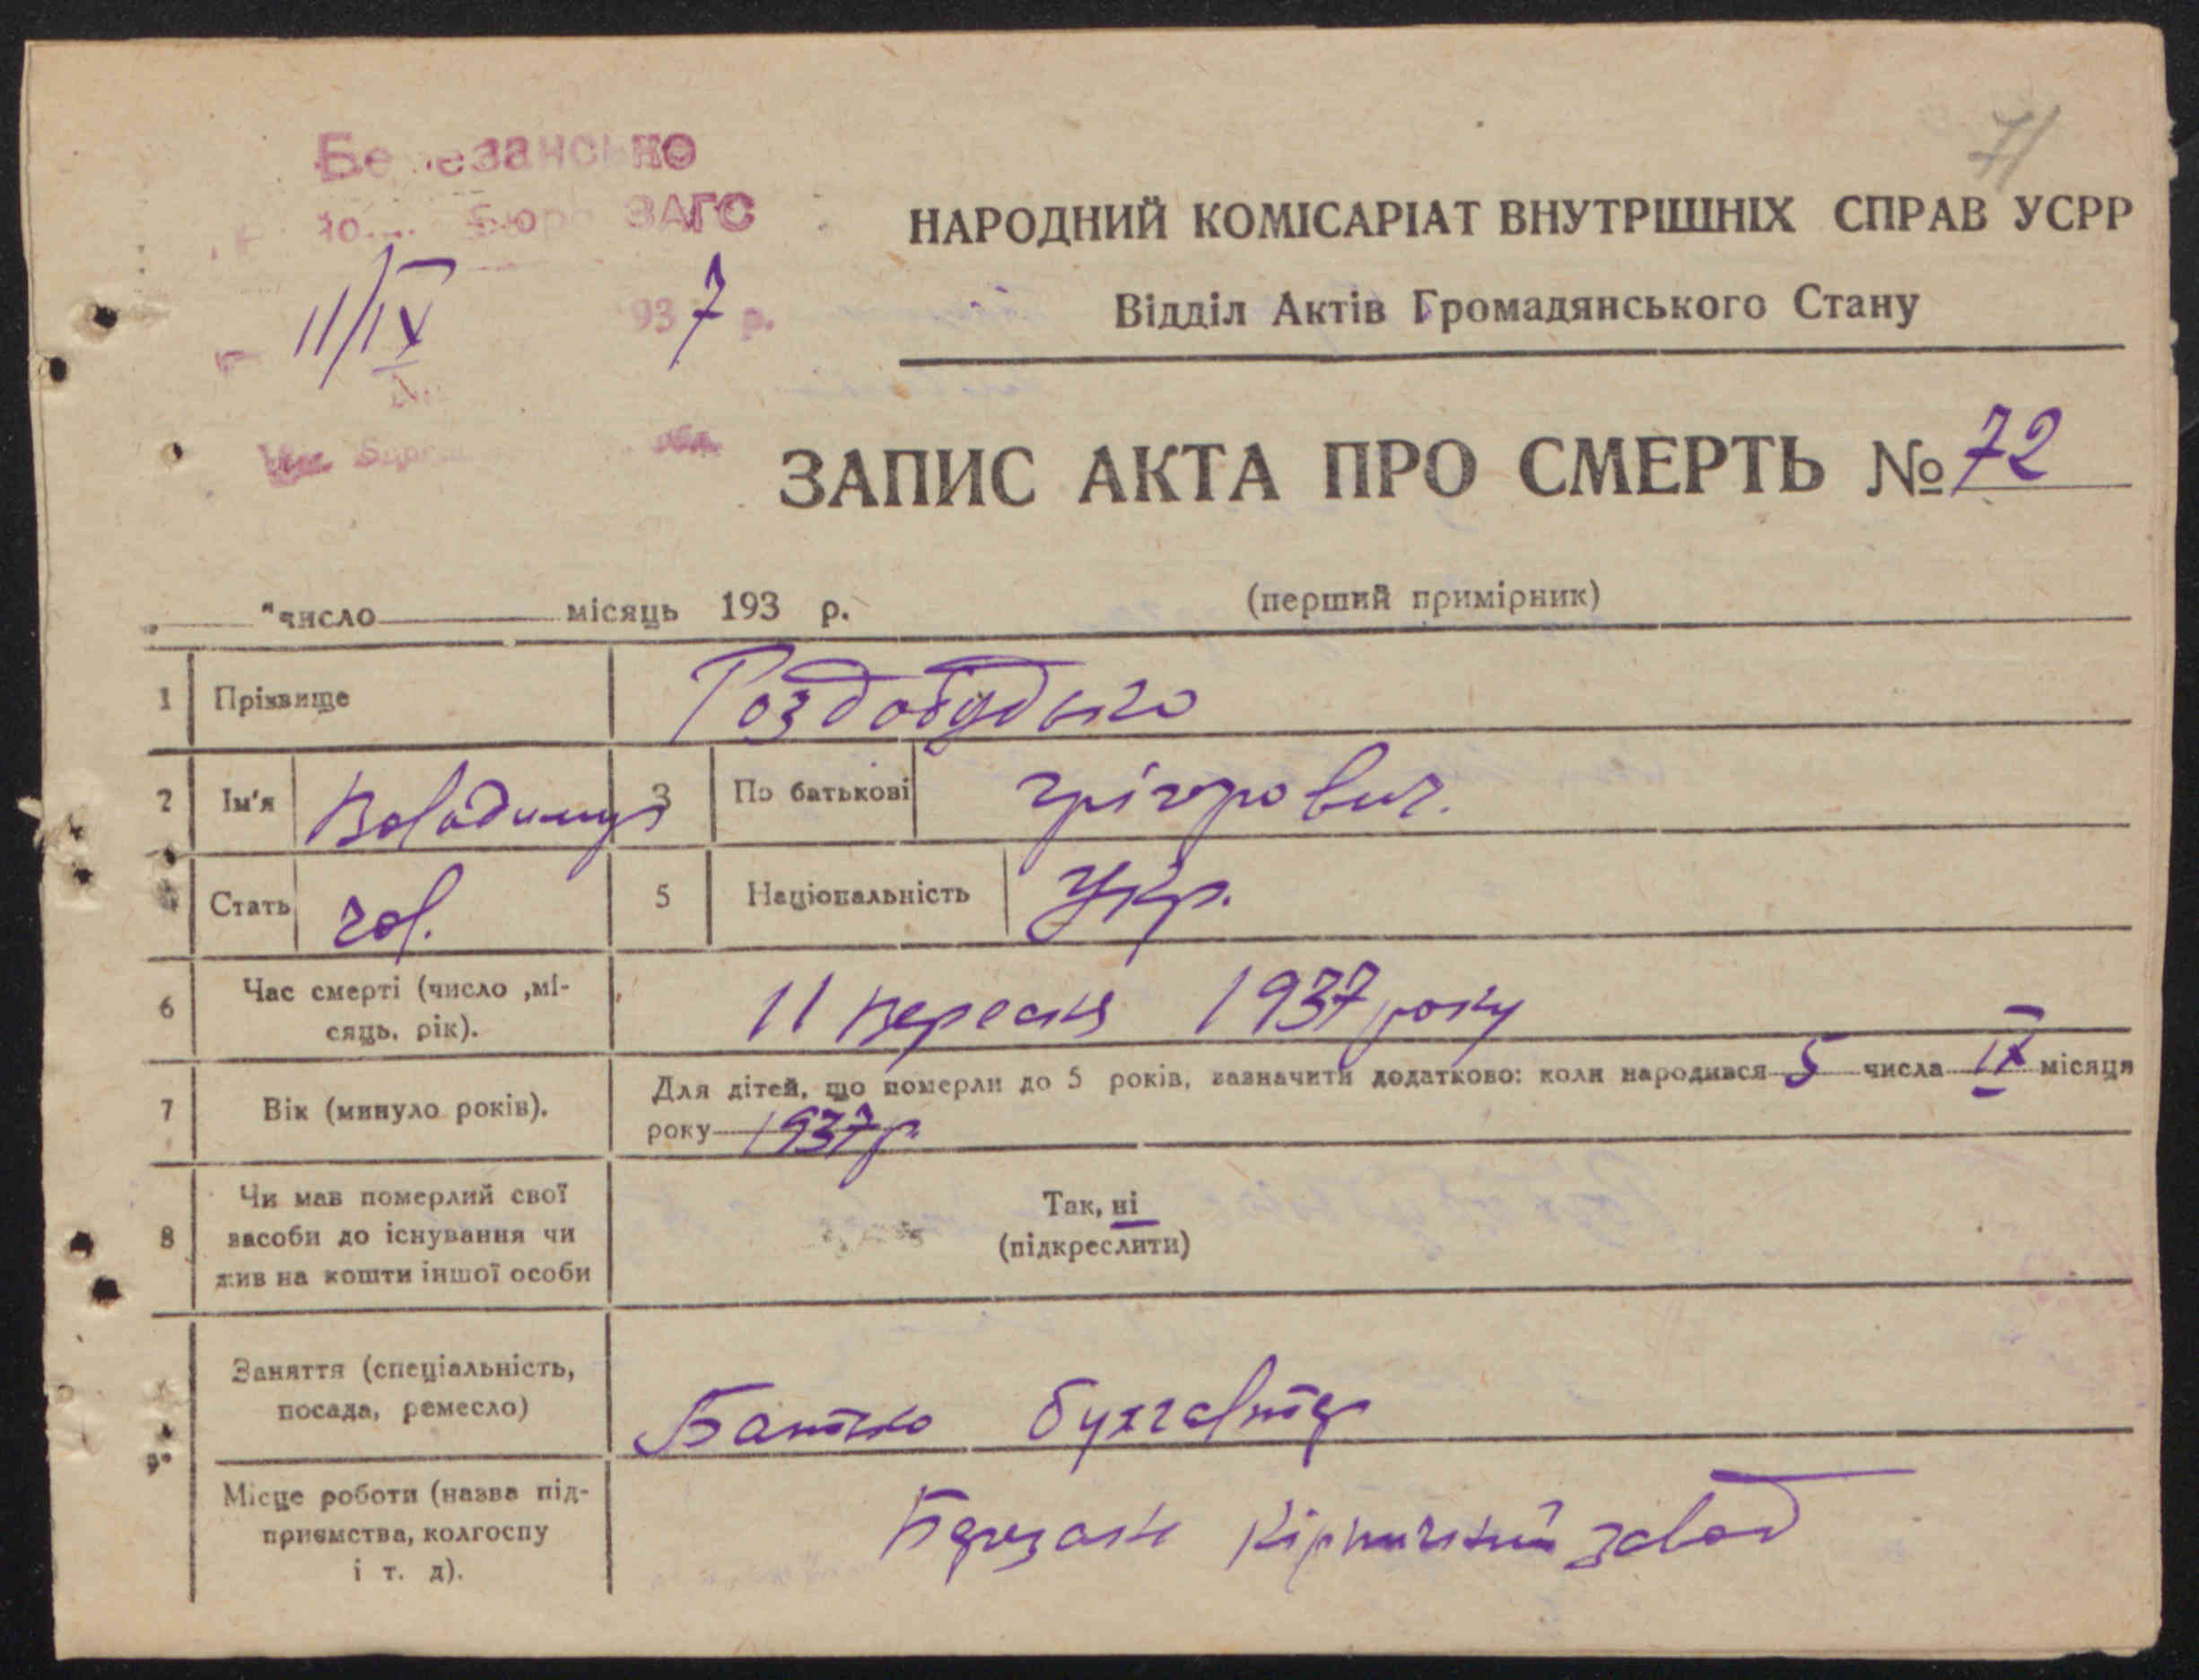 71
Березансько
Бюро ЗАГС
11/IX 1937 р.
обл.
НАРОДНИЙ КОМІСАРІАТ ВНУТРІШНІХ СПРАВ УСРР
Відділ Актів Громадянського Стану
ЗАПИС АКТА ПРО СМЕРТЬ № 72
" число місяць 193 р. (перший примірник)
1 Прізвище Роздобудько
2 Ім'я Володимир 3 По батькові Грігорович.
4 Стать чол. 5 Національність Укр.
6 Час смерті (число ,мі-
сяць, рік). 11 вересня 1937 року
7 Вік (минуло років). Для дітей, що померли до 5 років, зазначити додатково: коли народився 5 числа IX місяця
року 1937 р.
8 Чи мав померлий свої
засоби до існування чи
жив на кошти іншої особи
Так, ні
(підкреслити)
Заняття (спеціальність,
посада, ремесло) Батько бухгалтер
Місце роботи (назва під-
приємства, колгоспу
і т. д).
Березань Кірпичний завод